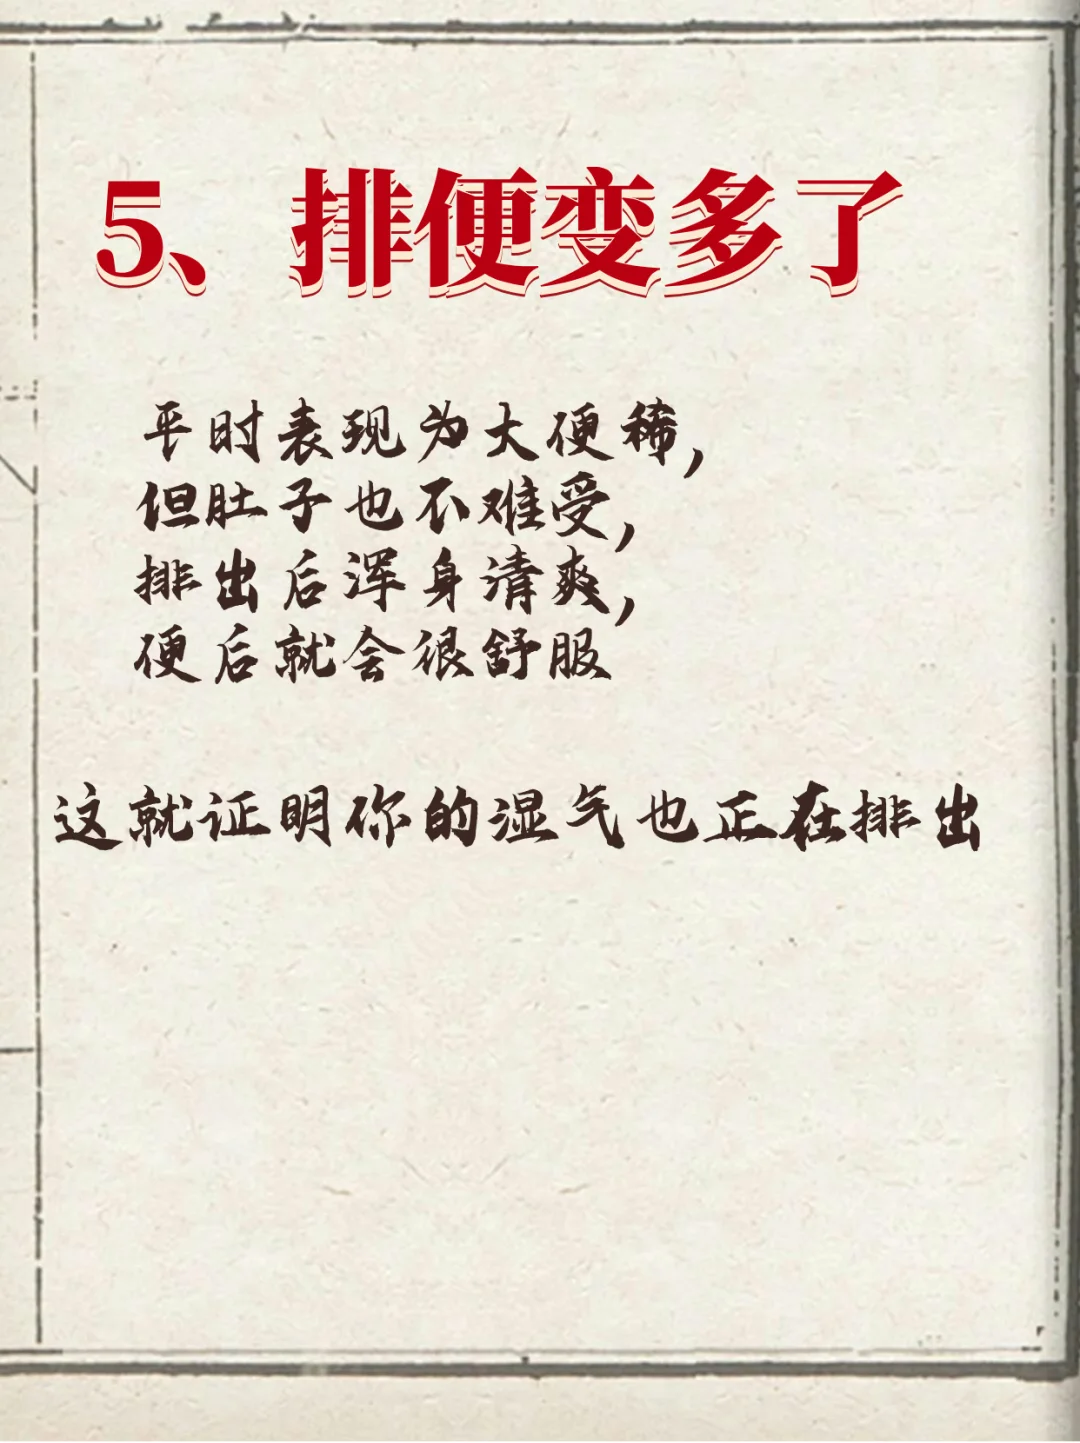 5、排便变多了
平时表现为大便稀，
但肚子也不难受，
排出后浑身清爽，
便后就会很舒服
这就证明你的湿气也正在排出